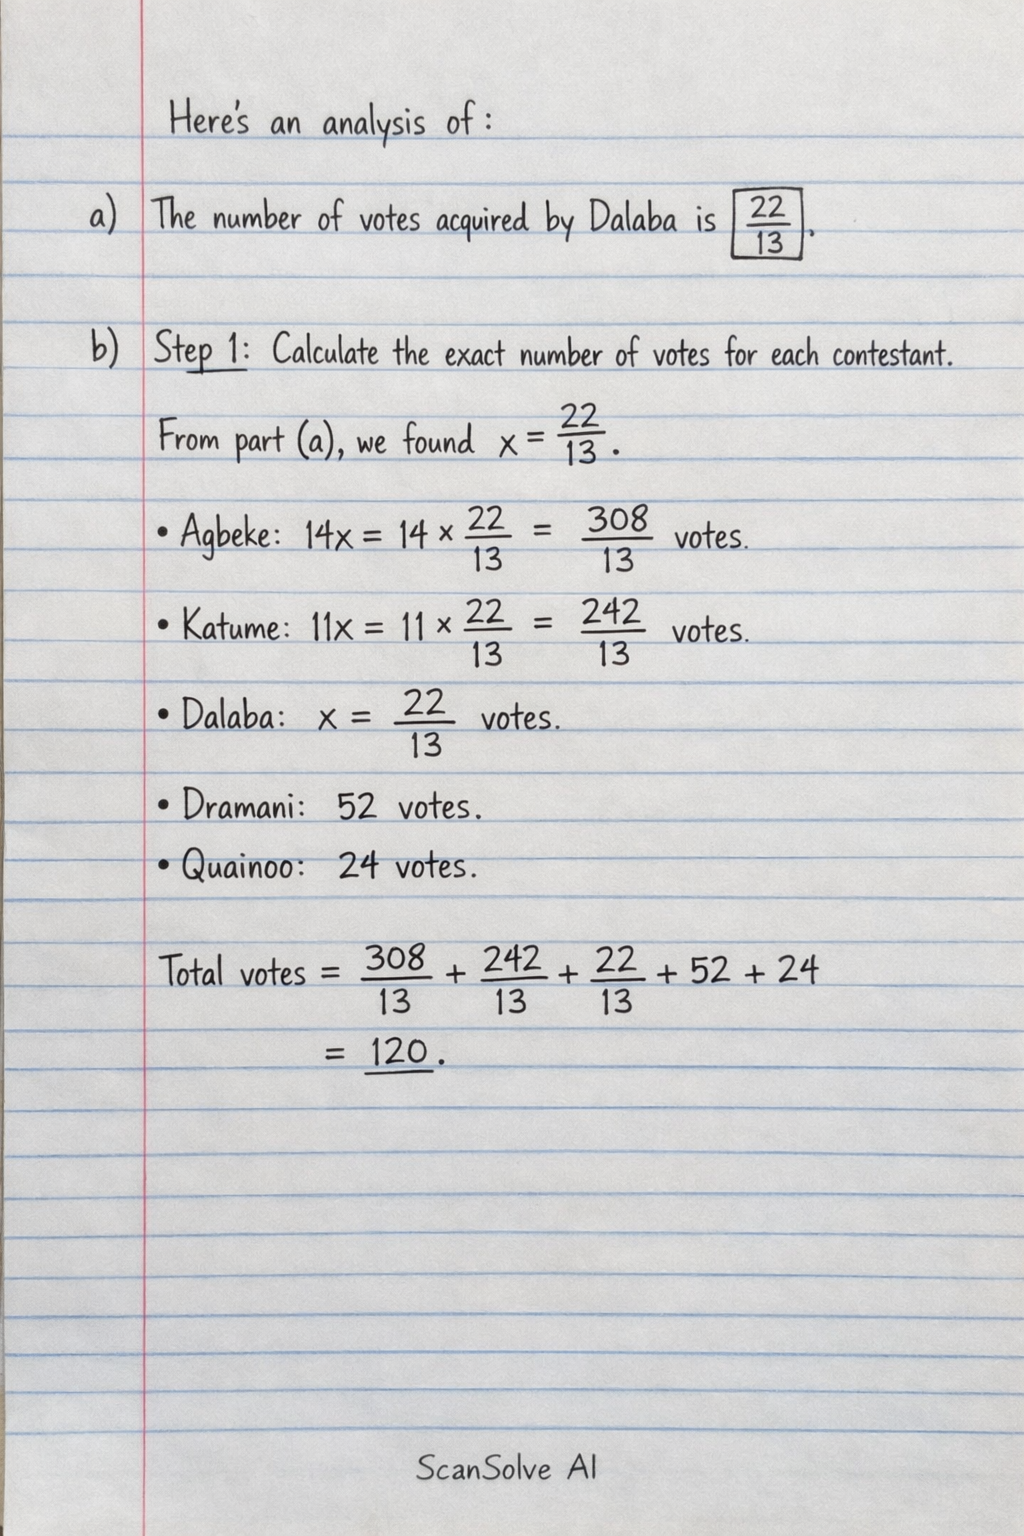 Here's an analysis of :
a) The number of votes acquired by Dalaba is 22/13.
b) Step 1: Calculate the exact number of votes for each contestant.
From part (a), we found x = 22/13.
• Agbeke: 14x = 14 × 22/13 = 308/13 votes.
• Katume: 11x = 11 × 22/13 = 242/13 votes.
• Dalaba: x = 22/13 votes.
• Dramani: 52 votes.
• Quainoo: 24 votes.
Total votes = 308/13 + 242/13 + 22/13 + 52 + 24
= 120.
ScanSolve AI